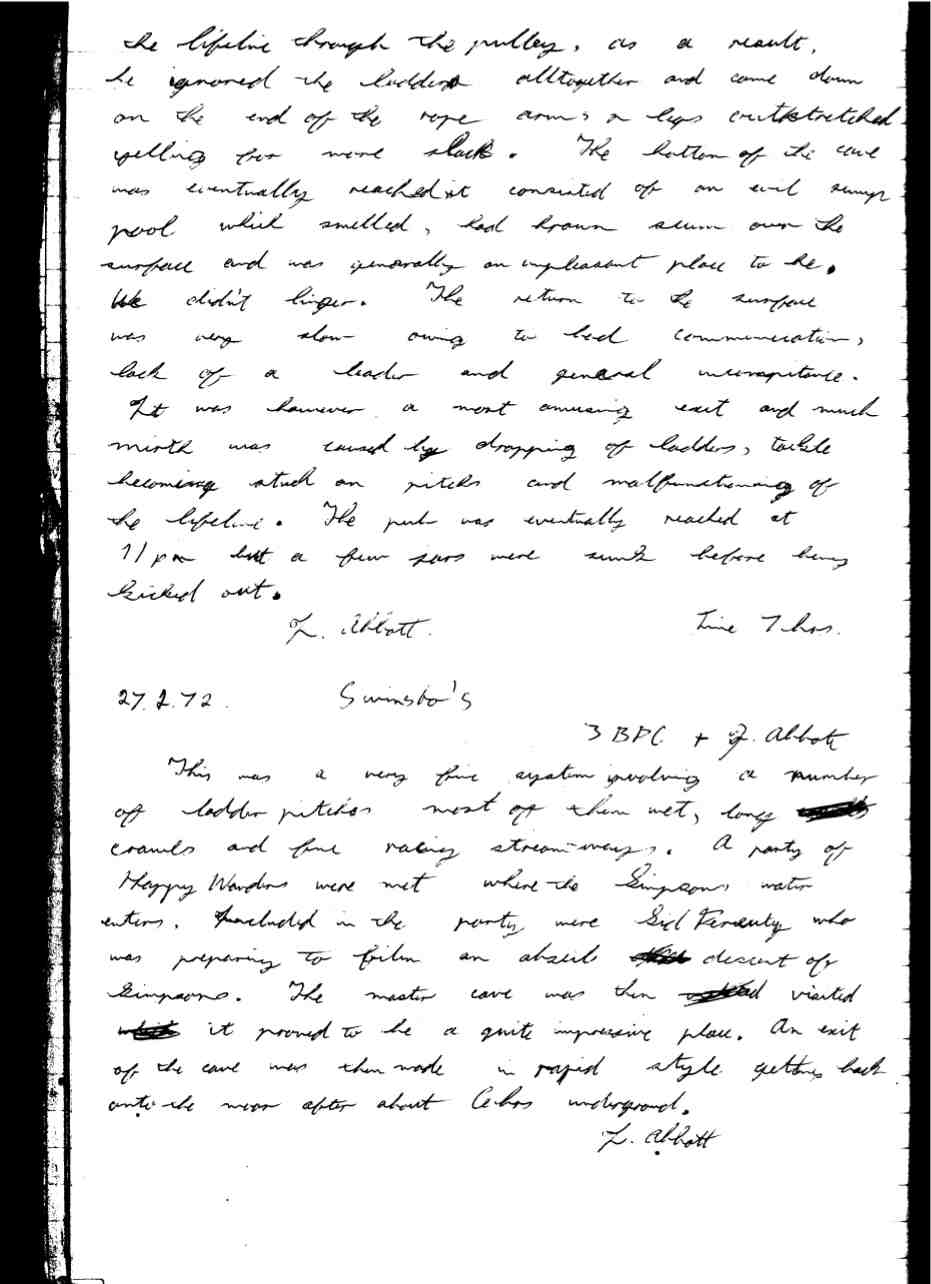 the lifeline through the pulley, as a result,
he ignored the ladders alltogether and came down
on the end of the rope arms & legs outstretched
yelling for more slack. The bottom of the cave
was eventually reached it consisted of an evil sump
pool which smelled, had brown scum over the
surface and was generally an unpleasant place to be.
We didn't linger. The return to the surface
was very slow owing to bad communication,
lack of a leader and general incompetance.
It was however a most amusing exit and much
mirth was caused by dropping of ladders, tackle
becoming stuck on pitches and malfunctioning of
the lifeline. The pub was eventually reached at
11pm but a few jars were sunk before being
kicked out.
J. Abbott. Time 7 hrs.
27.2.72. Swinsto's
3 BPC + J. Abbott
This was a very fine system involving a number
of ladder pitches most of them wet, long
crawls and fine racing stream-ways. A party of
Happy Wanders were met where the Simpsons water
enters. Included in the party were Sid Perou who
was preparing to film an abseil descent of
Simpsons. The master cave was then visited
it proved to be a quite impressive place. An exit
of the cave was then made in rapid style getting back
onto the moor after about 6 hrs underground.
J. Abbott